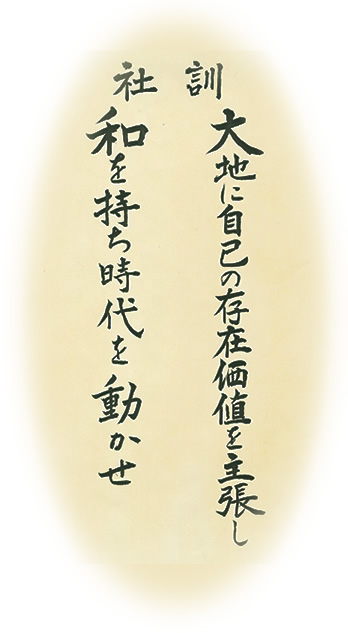 社訓
大地に自己の存在価値を主張し
和を持ち時代を動かせ